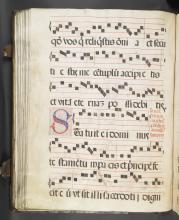 qđ vos q̄ reliq̄stis om̄ia et secu
ti estis me centuplū accipietis
et vitā eternā possidebitis
Statuit ei domi nus
testamētū pacis et p̄ncipē fe
cit eū ut sit illi sacerdotii digni